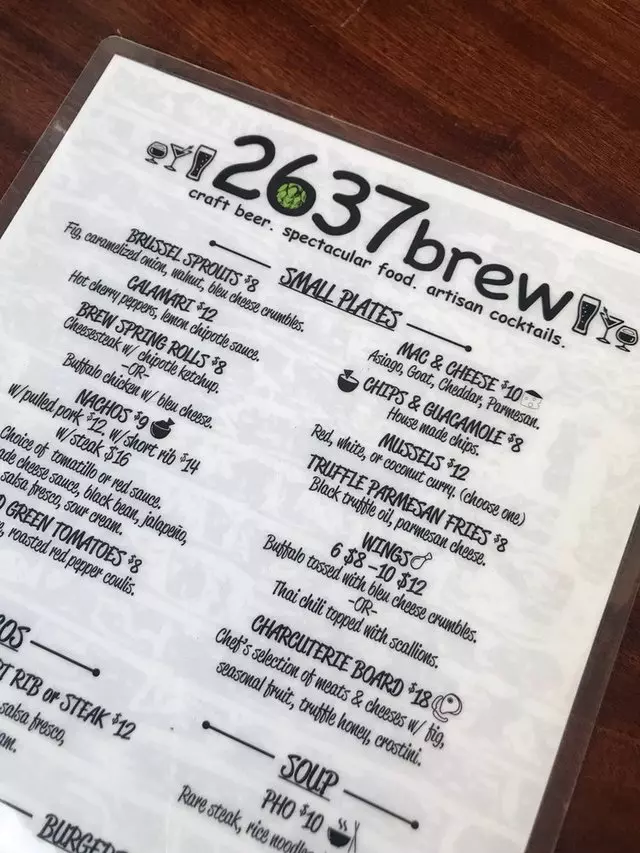 2637brew
craft beer. spectacular food. artisan cocktails.
SMALL PLATES
BRUSSEL SPROUTS $8
Fig, caramelized onion, walnut, bleu cheese crumbles.
CALAMARI $12
Hot cherry peppers, lemon chipotle sauce.
BREW SPRING ROLLS $8
Cheesesteak w/ chipotle ketchup.
-OR-
Buffalo chicken w/ bleu cheese.
NACHOS $9
w/pulled pork $12, w/short rib $14
w/ steak $16
Choice of tomatillo or red sauce.
cheese sauce, black bean, jalapeño,
salsa fresco, sour cream.
GREEN TOMATOES $8
roasted red pepper coulis.
MAC & CHEESE $10
Asiago, Goat, Cheddar, Parmesan.
CHIPS & GUACAMOLE $8
House made chips.
MUSSELS $12
Red, white, or coconut curry. (choose one)
TRUFFLE PARMESAN FRIES $8
Black truffle oil, parmesan cheese.
WINGS
6 $8 -10 $12
Buffalo tossed with bleu cheese crumbles.
-OR-
Thai chili topped with scallions.
CHARCUTERIE BOARD $18
Chef's selection of meats & cheeses w/ fig,
seasonal fruit, truffle honey, crostini.
RIB or STEAK $12
salsa fresco,
SOUP
PHO $10
Rare steak, rice